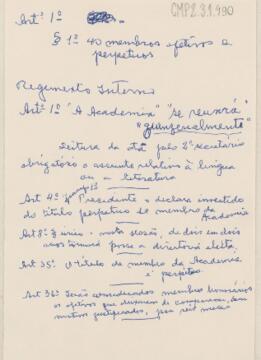 CMP2.3.1.990
Art. 1º
§ 1º 40 membros efetivos e
perpetuos
Regimento Interno
Art. 1º "A Academia" "se reunirá
quinzenalmente"
Leitura da ata pelo 2º secretário
obrigatório o assunto relativo à lingua
ou a literatura
Art 4º Presidente o declara investido
do titulo perpetuo de membro da
Academia
Art 8º nesta sessão, de dois em dois
anos tomará posse a directoria eleita.
Art 35º O título de membro da Academia
é perpétuo.
Art 36º Serão considerados membros honorários
os efetivos que deixarem de comparecer, sem
motivo justificado, por seis meses